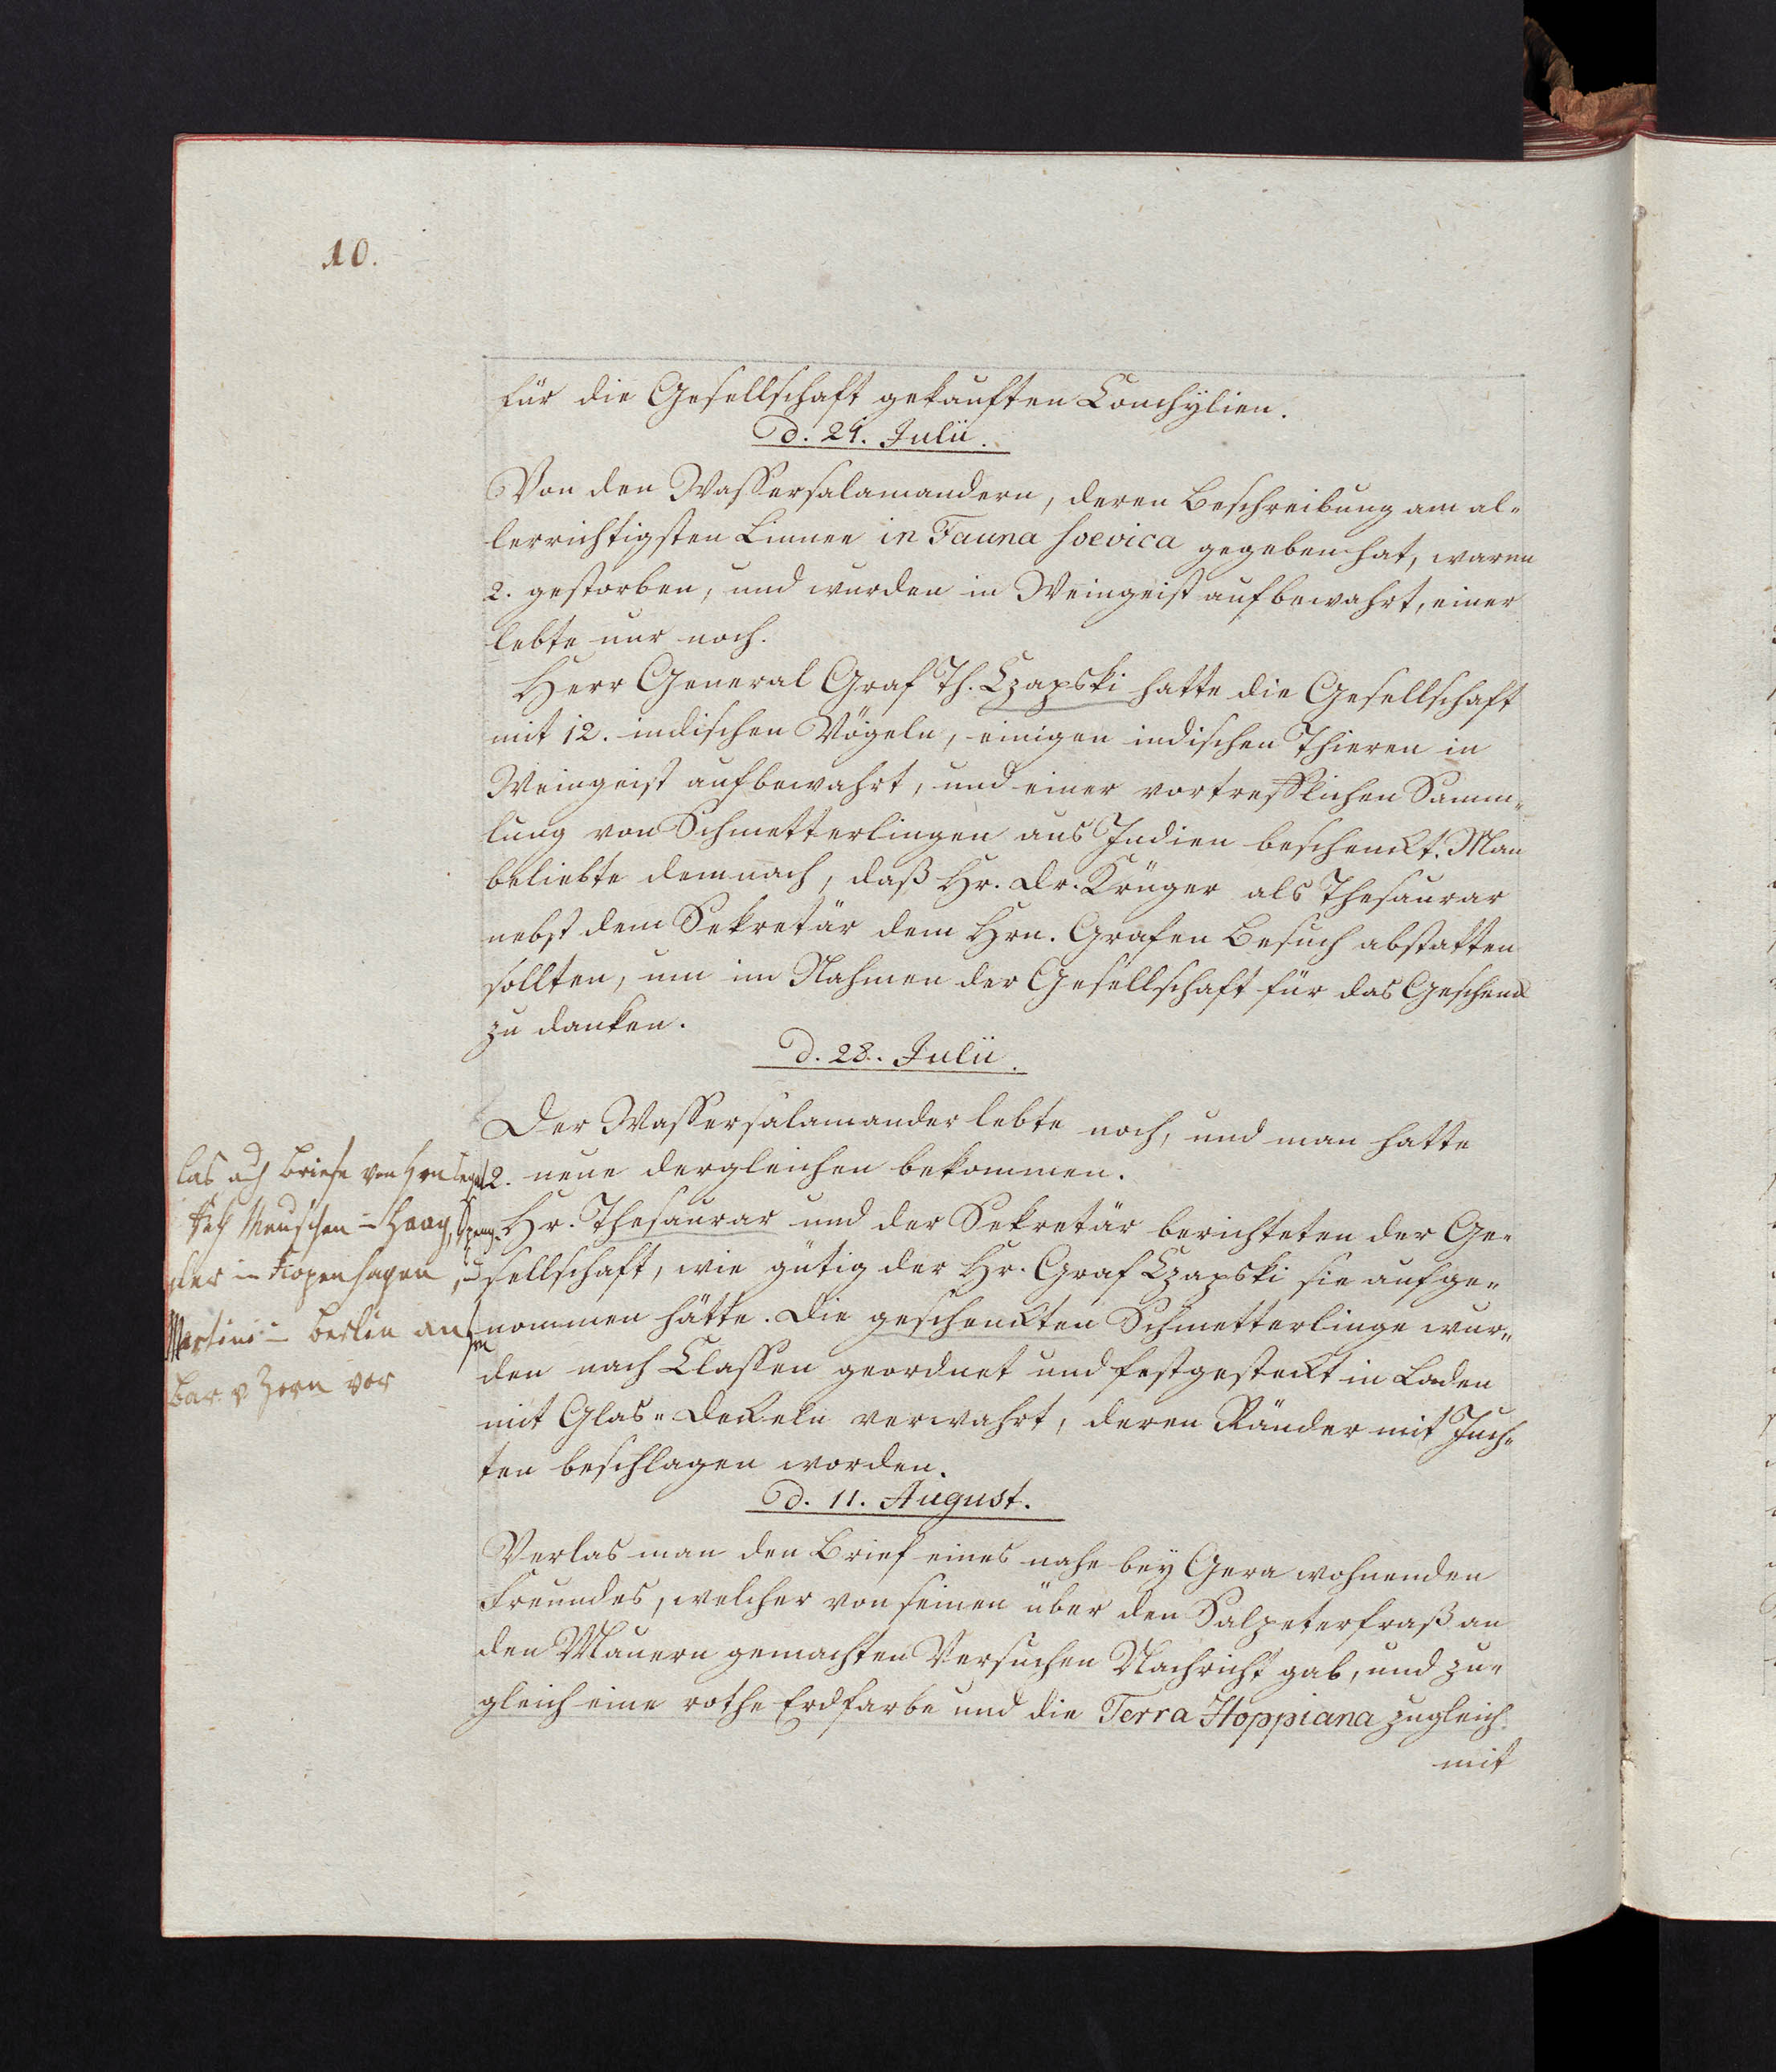 10.
für die Gesellschaft gekauften Conchylien.
d. 21. Julii.
Von den Wassersalamandern, deren Beschreibung am al-
lerrichtigsten Linnee in Fauna svevica gegeben hat, waren
2. gestorben, und wurden in Weingeist aufbewahrt, einer
lebte nur noch.
Herr General Graf Th. Czapski hatte die Gesellschaft
mit 12. indischen Vögeln, einigen indischen Thieren in
Weingeist aufbewahrt, und einer vortrefflichen Samm-
lung von Schmetterlingen aus Indien beschenckt. Man
beliebte demnach, daß Hr. Dr. Krüger als Thesaurar
nebst dem Sekretär dem Hrn. Grafen Besuch abstatten
sollten, um im Nahmen der Gesellschaft für das Geschenck
zu danken.
d. 28. Julii.
Der Wassersalamander lebte noch, und man hatte
2. neue dergleichen bekommen.
Hr. Thesaurar und der Sekretär berichteten der Ge-
sellschaft, wie gütig der Hr. Graf Czapski sie aufge-
nommen hätte. Die geschenckten Schmetterlinge wur-
den nach Classen geordnet und festgesteckt in Laden
mit Glas-Deckeln verwahrt, deren Ränder mit Juch-
ten beschlagen worden.
d. 11. August.
Verlas man den Brief eines nahe bey Gera wohnenden
Freundes, welcher von seinen über den Salpeterfraß an
den Mauern gemachten Versuchen Nachricht gab, und zu-
gleich eine rothe Erdfarbe und die Terra Hoppiana zugleich
mit
las auch Briefe von Hrn
Meuschen in Haag, Speng-
ler in Kopenhagen, u
Martini in Berlin an Hrn
Bar. v Zorn vor